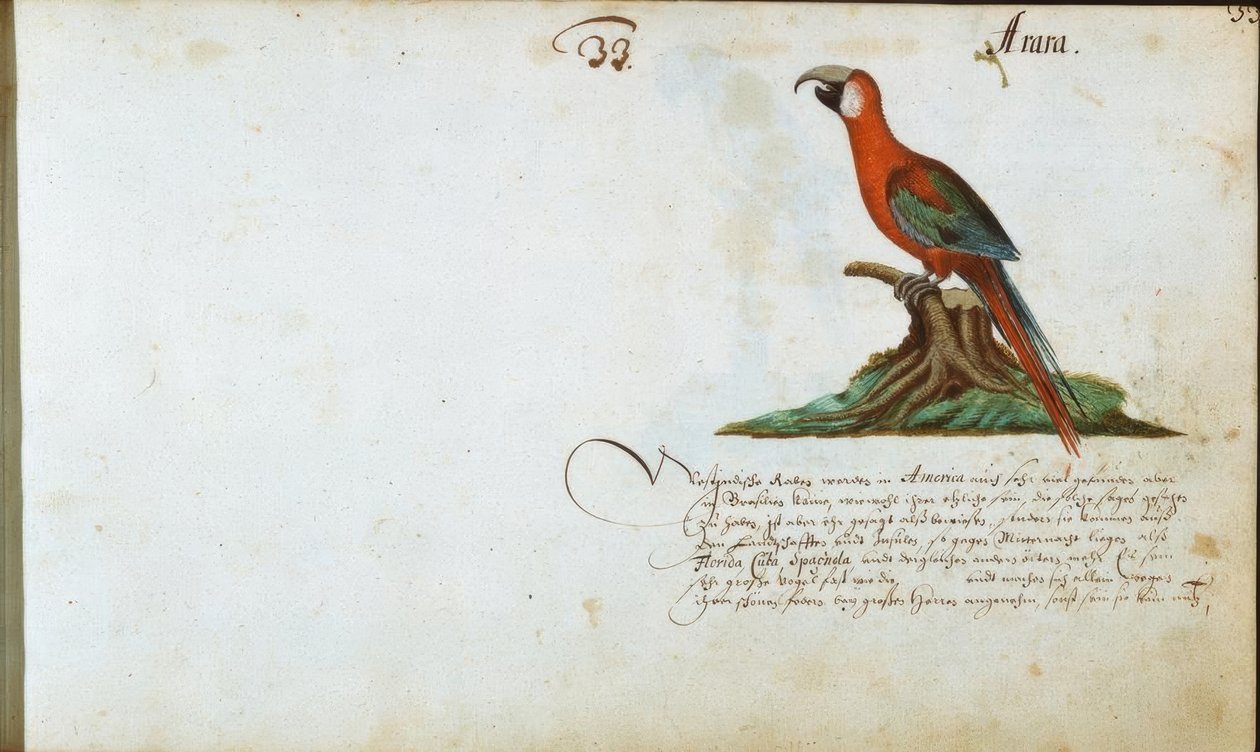 33.
33
Arara.
Westjndische Raben werden in America auch sehr viel gefunden aber
in Brasilien kaine, wiewohl ihrer etzliche sein, die solche sagen gesehen
Zu haben, jst aber ehr gesagt alß bewiesen, sondern sie kommen auß
den Landtschafften undt Insulen, so gegen Mitternacht liegen alß
Florida, Cuba, Spagnola undt dergleichen andern örtern mehr. Es sein
sehr große Vogel fast wie die undt machen sich allein wegen
ihrer schönen federn bey großen Herren angenehm, sonst sein sie kain nutz,